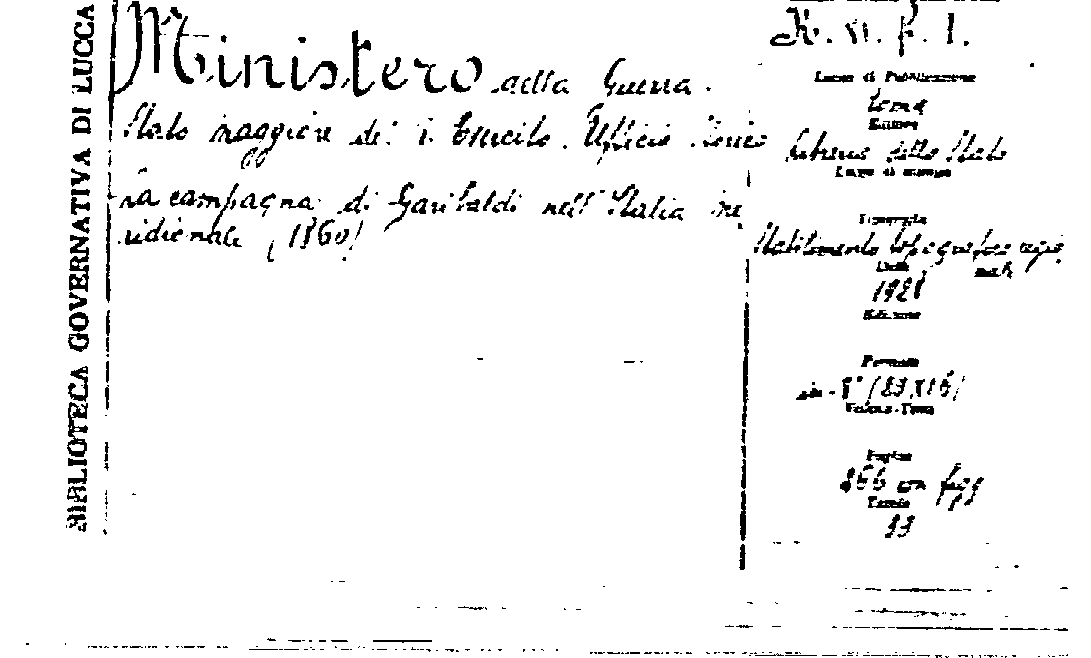 BIBLIOTECA GOVERNATIVA DI LUCCA
Ministero della Guerra.
Stato maggiore del R. Esercito. Ufficio Storico
La campagna di Garibaldi nell'Italia me
ridionale (1860)
Luogo di Pubblicazione
Roma
Editore
Libreria dello Stato
Luogo di stampa
Tipografia
Stabilimento topografico
Data
1928
Edizione
Formato
in-8° (23,
Pagine
366 con figg
Tavole